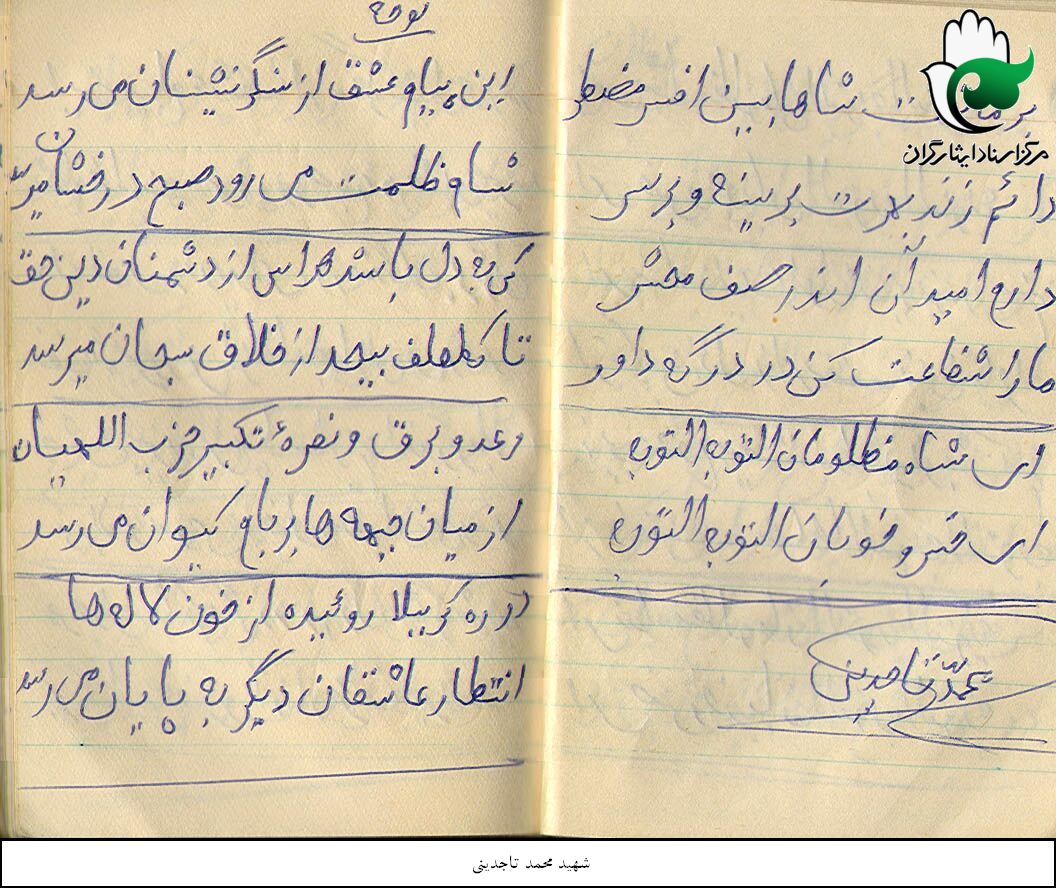 بر ماتمت شاها ببین افسر مضطر
دائم زند بهرت بر سینه و بر سر
دارم امید آن اندر صف محشر
ما را شفاعت کن در درگه داور
ای شاه مظلومان التوبه التوبه
ای خسرو خوبان التوبه التوبه
محمد تاجدینی
مرکز اسناد ایثارگران
نوحه
این پیام عشق از سنگر نشینان می رسد
شام ظلمت می رود صبح درخشان میرسد
کی به دل باشد هراس از دشمنان دین حق
تا که لطف بیحد از خلاق سبحان میرسد
رعد و برق و نعرهٔ تکبیر حزب اللهیان
از میان جبهه ها بر بام کیوان می رسد
در ره کربلا روئیده از خون لاله ها
انتظار عاشقان دیگر به پایان می رسد
شهید محمد تاجدینی